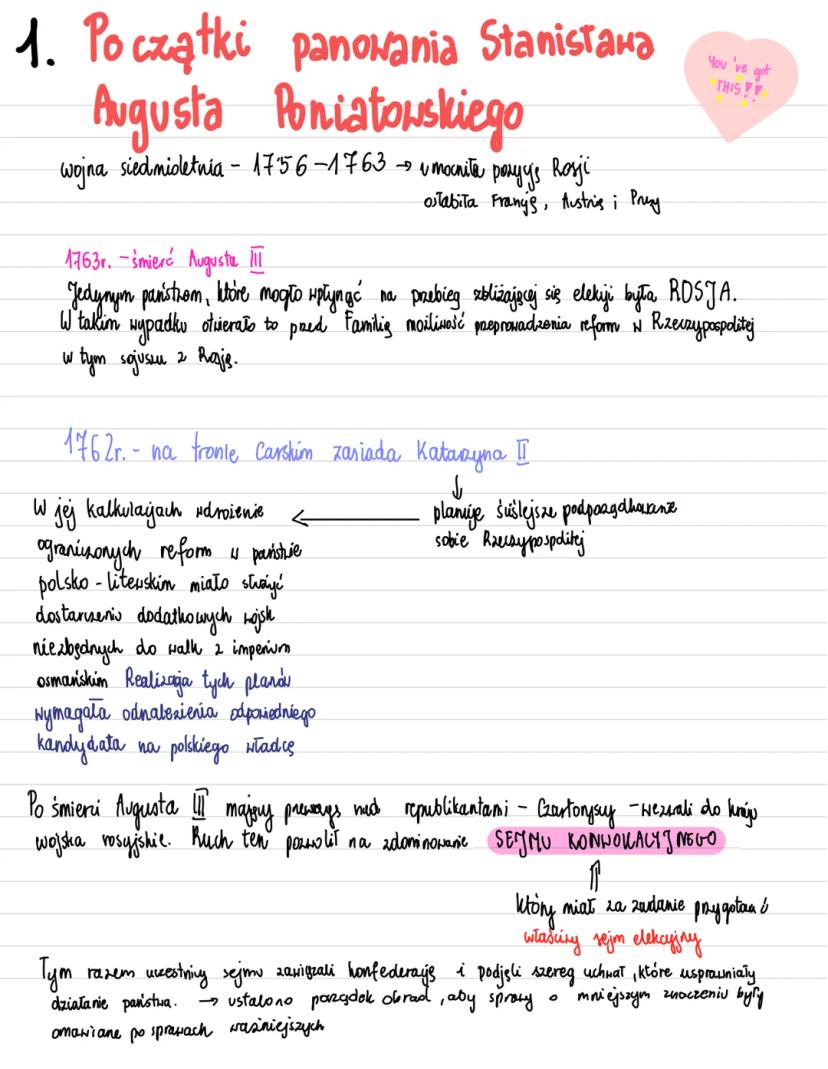 1. Początki panowania Stanisława
Augusta Poniatowskiego
You've got
THIS!!
wojna siedmioletnia - 1756-1763 → umocniła pozycję Rosji
osłabiła Francję, Austrię i Prusy
1763r. - śmierć Augusta III
Jedynym państwem, które mogło wpłynąć na przebieg zbliżającej się elekcji była ROSJA.
W takim wypadku otwierało to przed Familią możliwość przeprowadzenia reform w Rzeczypospolitej
w tym sojuszu z Rosją.
1762r. - na tronie Carskim zasiada Katarzyna II
↓
planuje ściślejsze podporządkowanie
sobie Rzeczypospolitej
←
W jej kalkulacjach wdrożenie
ograniczonych reform w państwie
polsko-litewskim miało służyć
dostarczeniu dodatkowych wojsk
niezbędnych do walk z imperium
osmańskim Realizacja tych planów
wymagała odnalezienia odpowiedniego
kandydata na polskiego władcę
Po śmierci Augusta III mający przewagę nad republikantami - Czartoryscy - wezwali do kraju
wojska rosyjskie. Ruch ten pozwolił na zdominowanie SEJMU KONWOKACYJNEGO
⇑
który miał za zadanie przygotować
właściwy sejm elekcyjny
Tym razem uczestnicy sejmu zawiązali konfederację i podjęli szereg uchwał, które usprawniały
działanie państwa. → ustalono porządek obrad, aby sprawy o mniejszym znaczeniu były
omawiane po sprawach ważniejszych